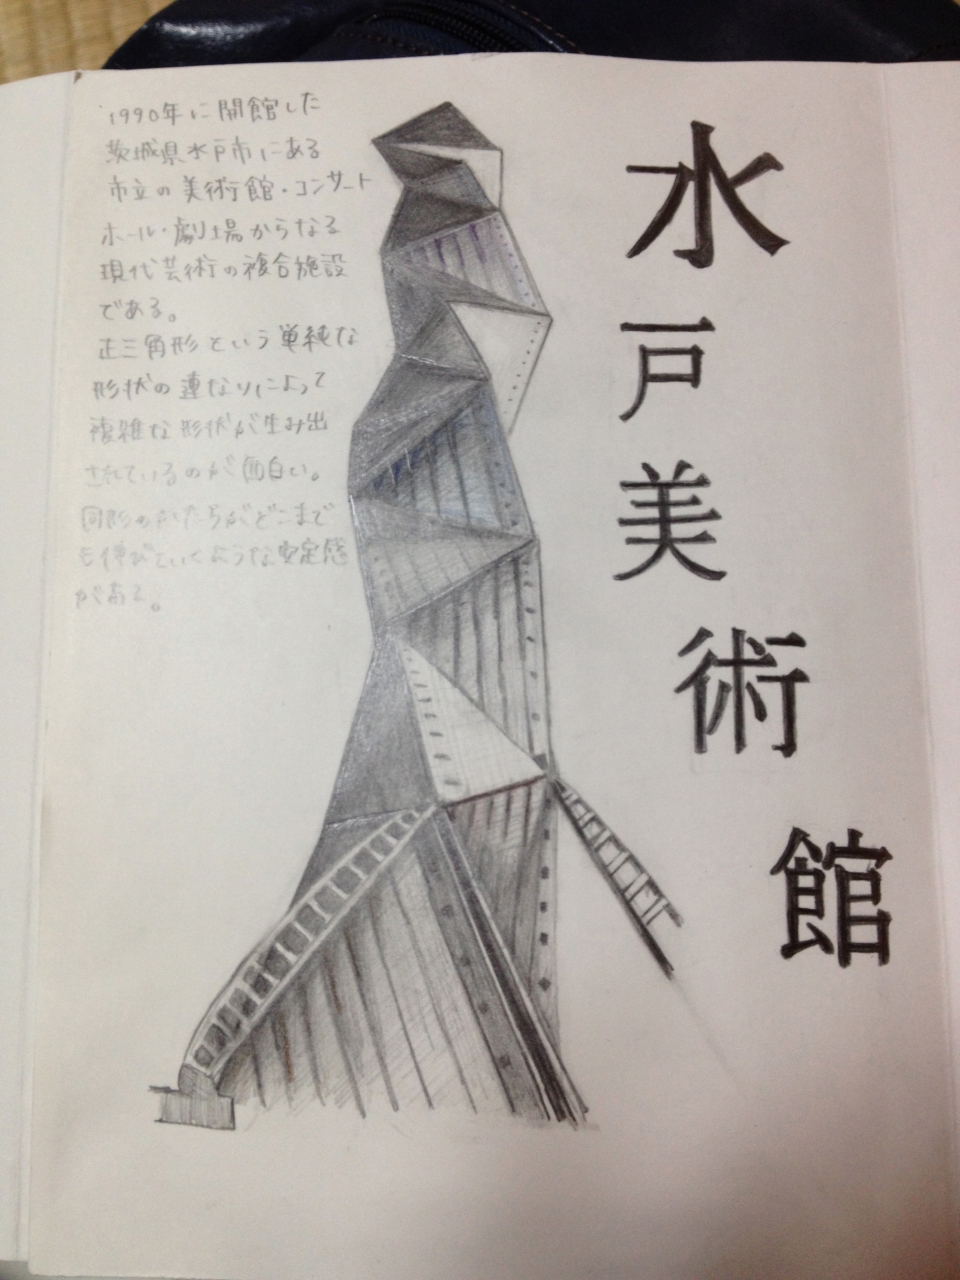 水戸美術館
1990年に開館した
茨城県水戸市にある
市立の美術館・コンサート
ホール・劇場からなる
現代芸術の複合施設
である。
正三角形という単純な
形状の連なりによって
複雑な形状が生み出
されているのが面白い。
同形のかたちがどこまで
も伸びていくような安定感
がある。